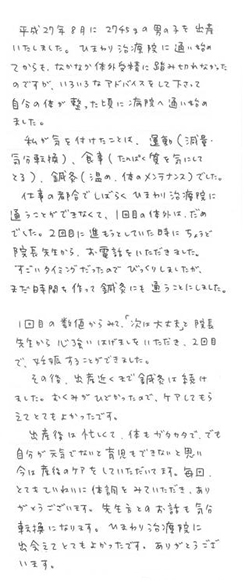 平成27年8月に2745gの男の子を出産
いたしました。ひまわり治療院に通い始め
てからも、なかなか体外受精に踏み切れなかった
のですが、いろいろなアドバイスをして下さって
自分の体が整った頃に病院へ通い始め
ました。
私が気を付けたことは、運動(減量・
気分転換)、食事(たんぱく質を気にして
てる)、鍼灸(温め、体のメンテナンス)でした。
仕事の都合でしばらくひまわり治療院に
通うことができなくて、1回目の体外は、だめ
でした。2回目に進もうとしていた時にちょうど
院長先生から、お電話をいただきました。
すごいタイミングだったのでびっくりしましたが、
また時間を作って鍼灸にも通うことにしました。
1回目の数値からみて、「次は大丈夫」と院長
先生から心強いはげましをいただき、2回目
で、妊娠することができました。
その後、出産近くまで鍼灸は続け
ました。むくみがひどかったので、ケアしてもら
えてとてもよかったです。
出産後は忙しくて、体もガタガタで、でも
自分が元気でないと育児もできないと思い
今は産後のケアをしていただいてます。毎回、
とてもていねいに体調をみていただき、あり
がとうございます。先生方とのお話も気分
転換になります。ひまわり治療院に
出会えてとてもよかったです。ありがとうござ
います。